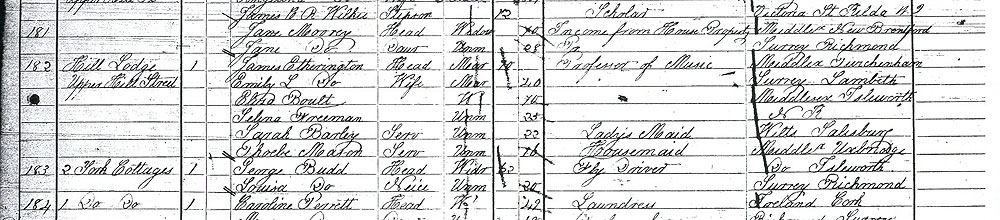 James E P Wilkie Stepson 12 Scholar Victoria St Kilda
181 Jane Moorey Head Widow 70 Income from House Property Middlex New Brentford
Jane Do Daur Unm 28 Do Surrey Richmond
182 Hill Lodge 1 James Etherington Head Mar 70 Professor of Music Middlex Twickenham
Upper Hill Street Emily L Do Wife Mar 20 Surrey Lambeth
Eliza Boult W 70 Middlesex Isleworth
Selina Freeman Unm 25 N K
Sarah Barley Serv Unm 22 Ladys Maid Wilts Salisbury
Phoebe Mason Serv Unm 16 Housemaid Middlex Uxbridge
183 2 York Cottages 1 George Budd Head Widr 62 Fly Driver Do Isleworth
Louisa Do Neice Unm 20 Surrey Richmond
184 1 Do Do 1 Caroline Perrett Head W 42 Laundress Ireland Cork